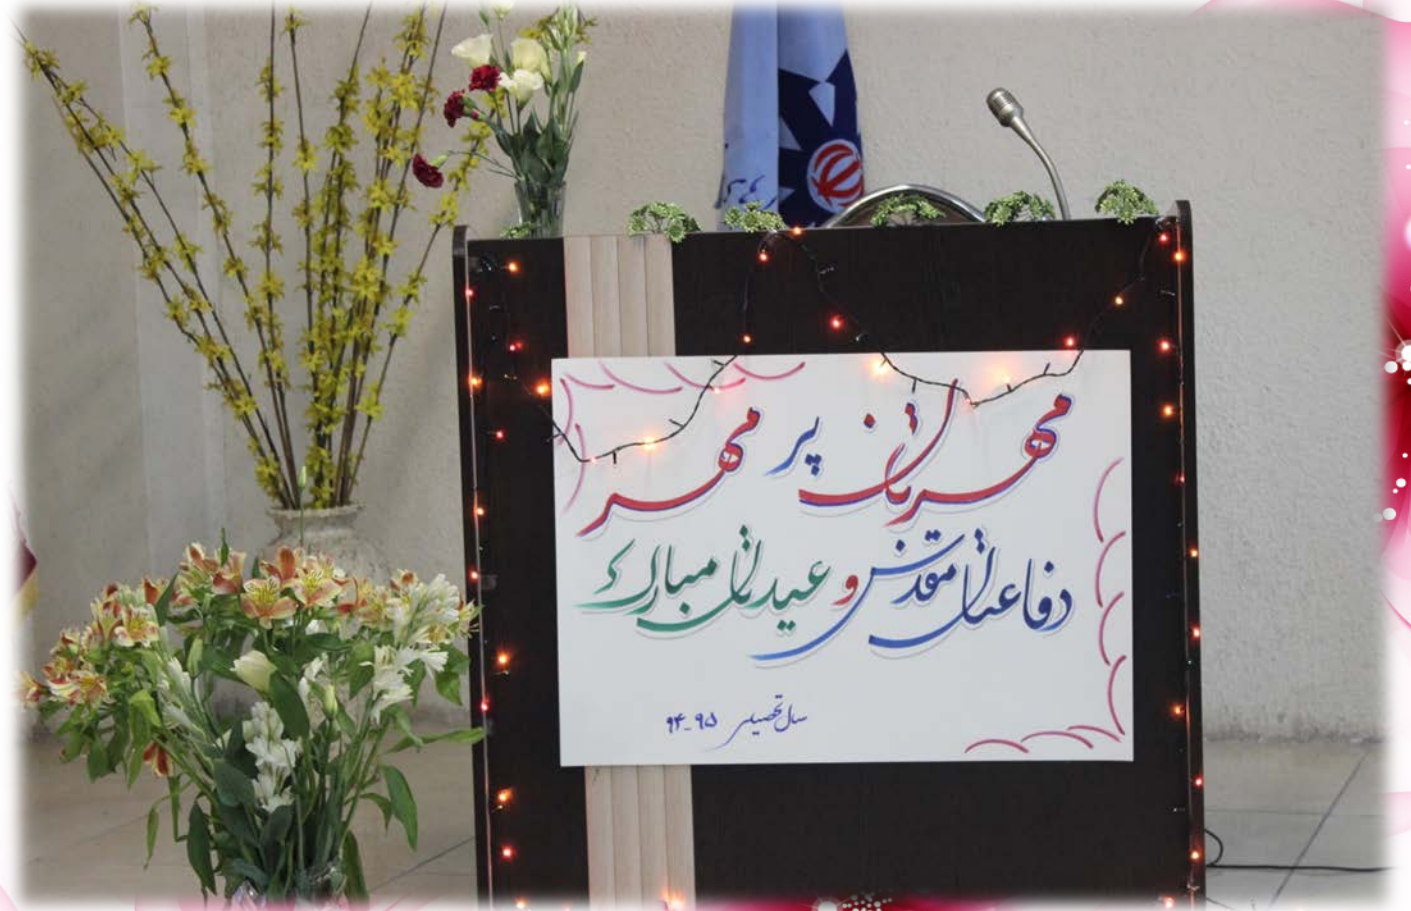 مهربانان پر مهر
دفاعتان مقدس و عیدتان مبارک
سال تحصیلی ۹۵_۹۴